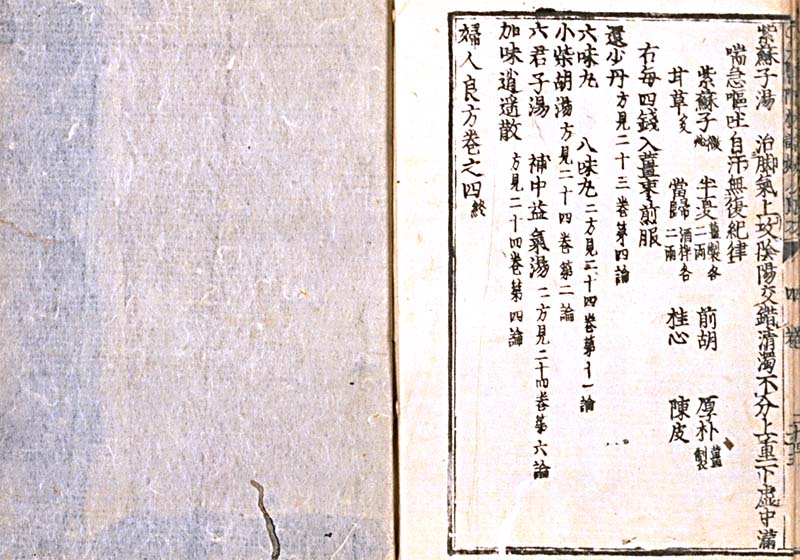 紫蘇子湯　治脚氣上攻陰陽交錯清濁不分上重下虛中滿
喘急嘔吐自汗無復紀律
紫蘇子微炒　半夏薑製各二兩　前胡　厚朴薑製
甘草炙　當歸酒拌各二兩　桂心　陳皮
右每四錢入薑棗煎服
還少丹方見二十三卷第四論
六味丸　八味丸二方見二十四卷第十一論
小柴胡湯方見二十四卷第二論
六君子湯　補中益氣湯二方見二十四卷第六論
加味逍遥散方見二十四卷第四論
婦人良方卷之四終